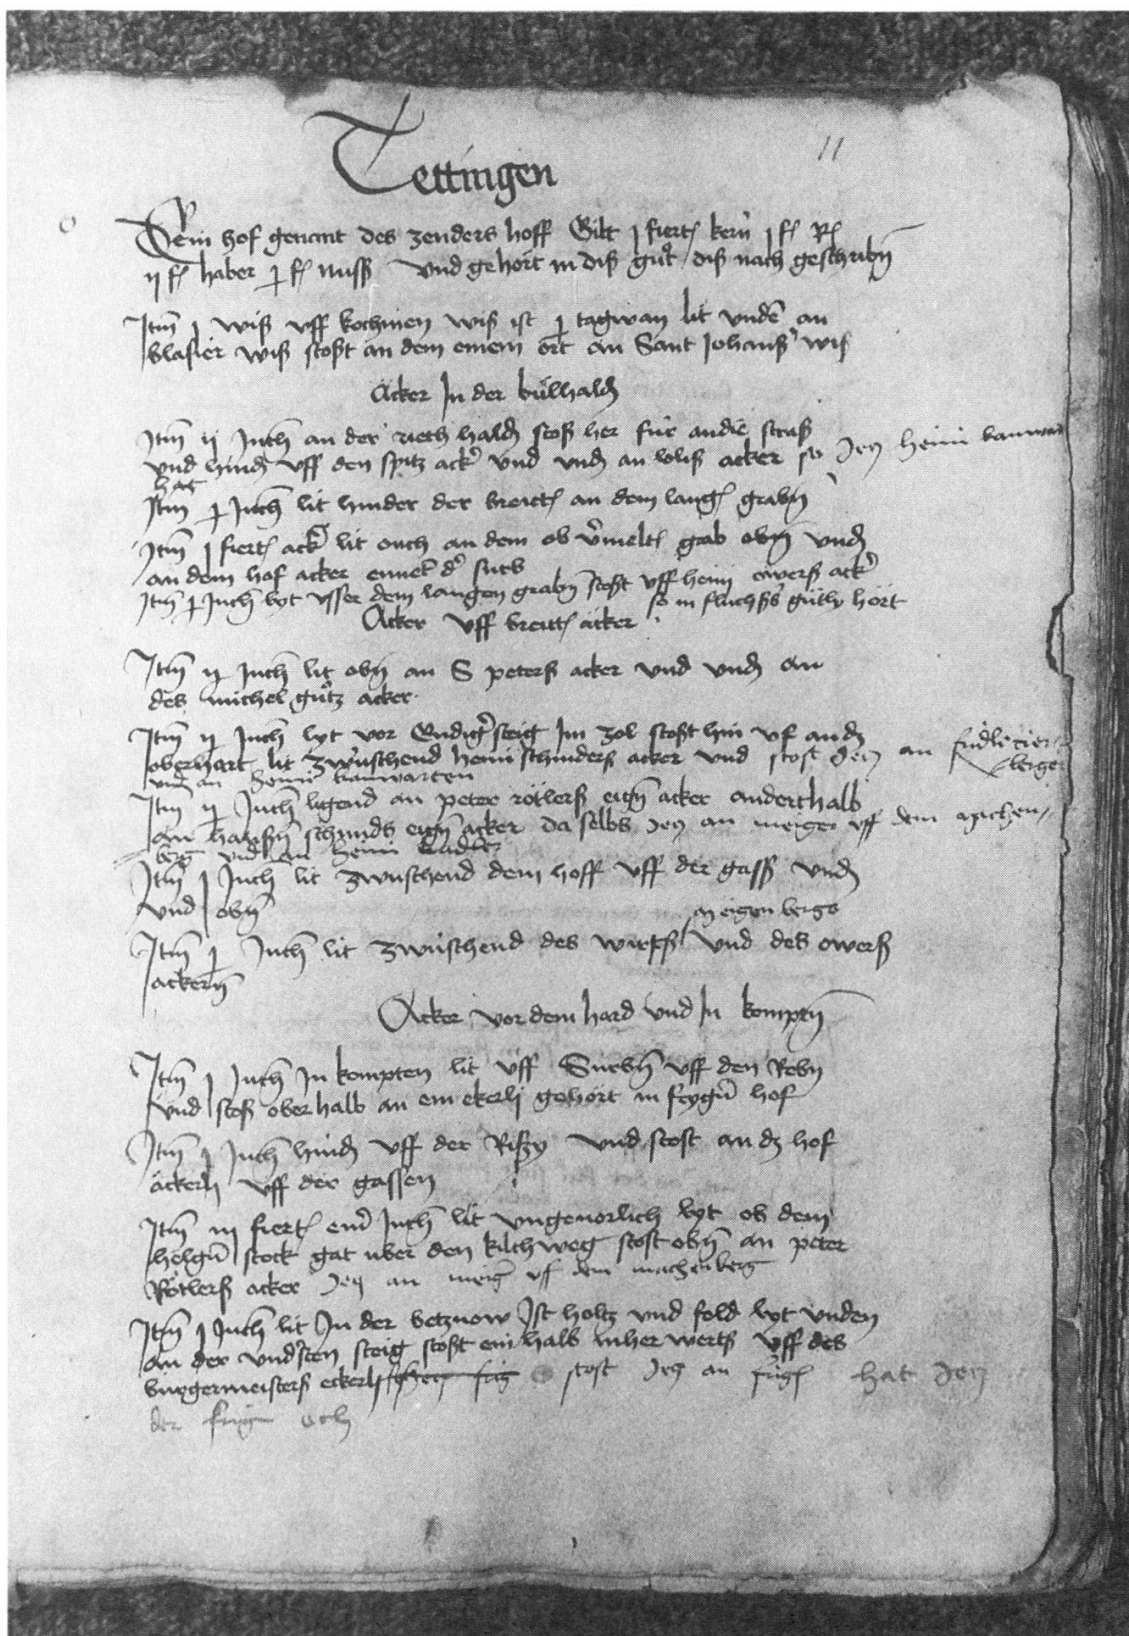 11
Tettingen
Ein hof genant des zenders hoff Gilt j fiert kern j f R
ij f haber j f nuss Vnd gehört in dis gůt dis nach geschribn
Itm j wis vff kochinen wis ist j tagwan lit vnden an
blasier wis stosst an dem einem ort an Sant Johanss wis
Acker In der bůlhald
Itm ij Juch an der rieth hald stoss her für an die strass
vnd hind vff den spitz acker vnd vnd an acker so Jetz heini banwart
hat
Itm j Juch lit hinder der breitt an dem lang grabn
Itm j fiert acker lit ouch an dem ob vermelt grab obn vnd
an dem hof acker ennet der surb
Itm j Juch lyt vsser dem langen grabn stosst vff heini owers acker
so in fluchss gütly hört
Acker vff breitt äcker
Itm ij Juch lit obn an S peters acker vnd vnd an
des michel gůtz acker
Itm ij Juch lyt vor Endiger steig Im zol stosst hin vf an dz
oberhart lit zwüschend heini schniders acker vnd stost Jetz an
berger
vnd an heini banwarten
Itm ij Juch ligend an peter rötlers eign acker anderthalb
an hansn schmids eign acker da selbs Jetz an meiger vff dem machen
berg vnd an heini
Itm j Juch lit zwüschend dem hoff vff der gass vnd
vnd obn
meigenbergs
Itm j Juch lit zwüschend des wirtss vnd des owers
ackern
Acker vor dem hard vnd In komptn
Itm j Juch In kompten lit vff Surbn vff den Rebn
vnd stoss oberhalb an ein ekerlj gehört in frygen hof
Itm j Juch hind vff der Rissy vnd stost an dz hof
äckerlj vff der gassen
Itm iij fiert einer Juch lit vngeuorlich lyt ob dem
helgen stock gat über den kilchweg stost obn an peter
Rötlers acker Jetz an meiger vf dem machenberg
Itm j Juch lit In der betznow Ist holtz vnd feld lyt vnden
an der vndersten steig stosst ein halb inher werts vff des
burgermeisters eckerlj stost Jetz an hat Jetz
der och